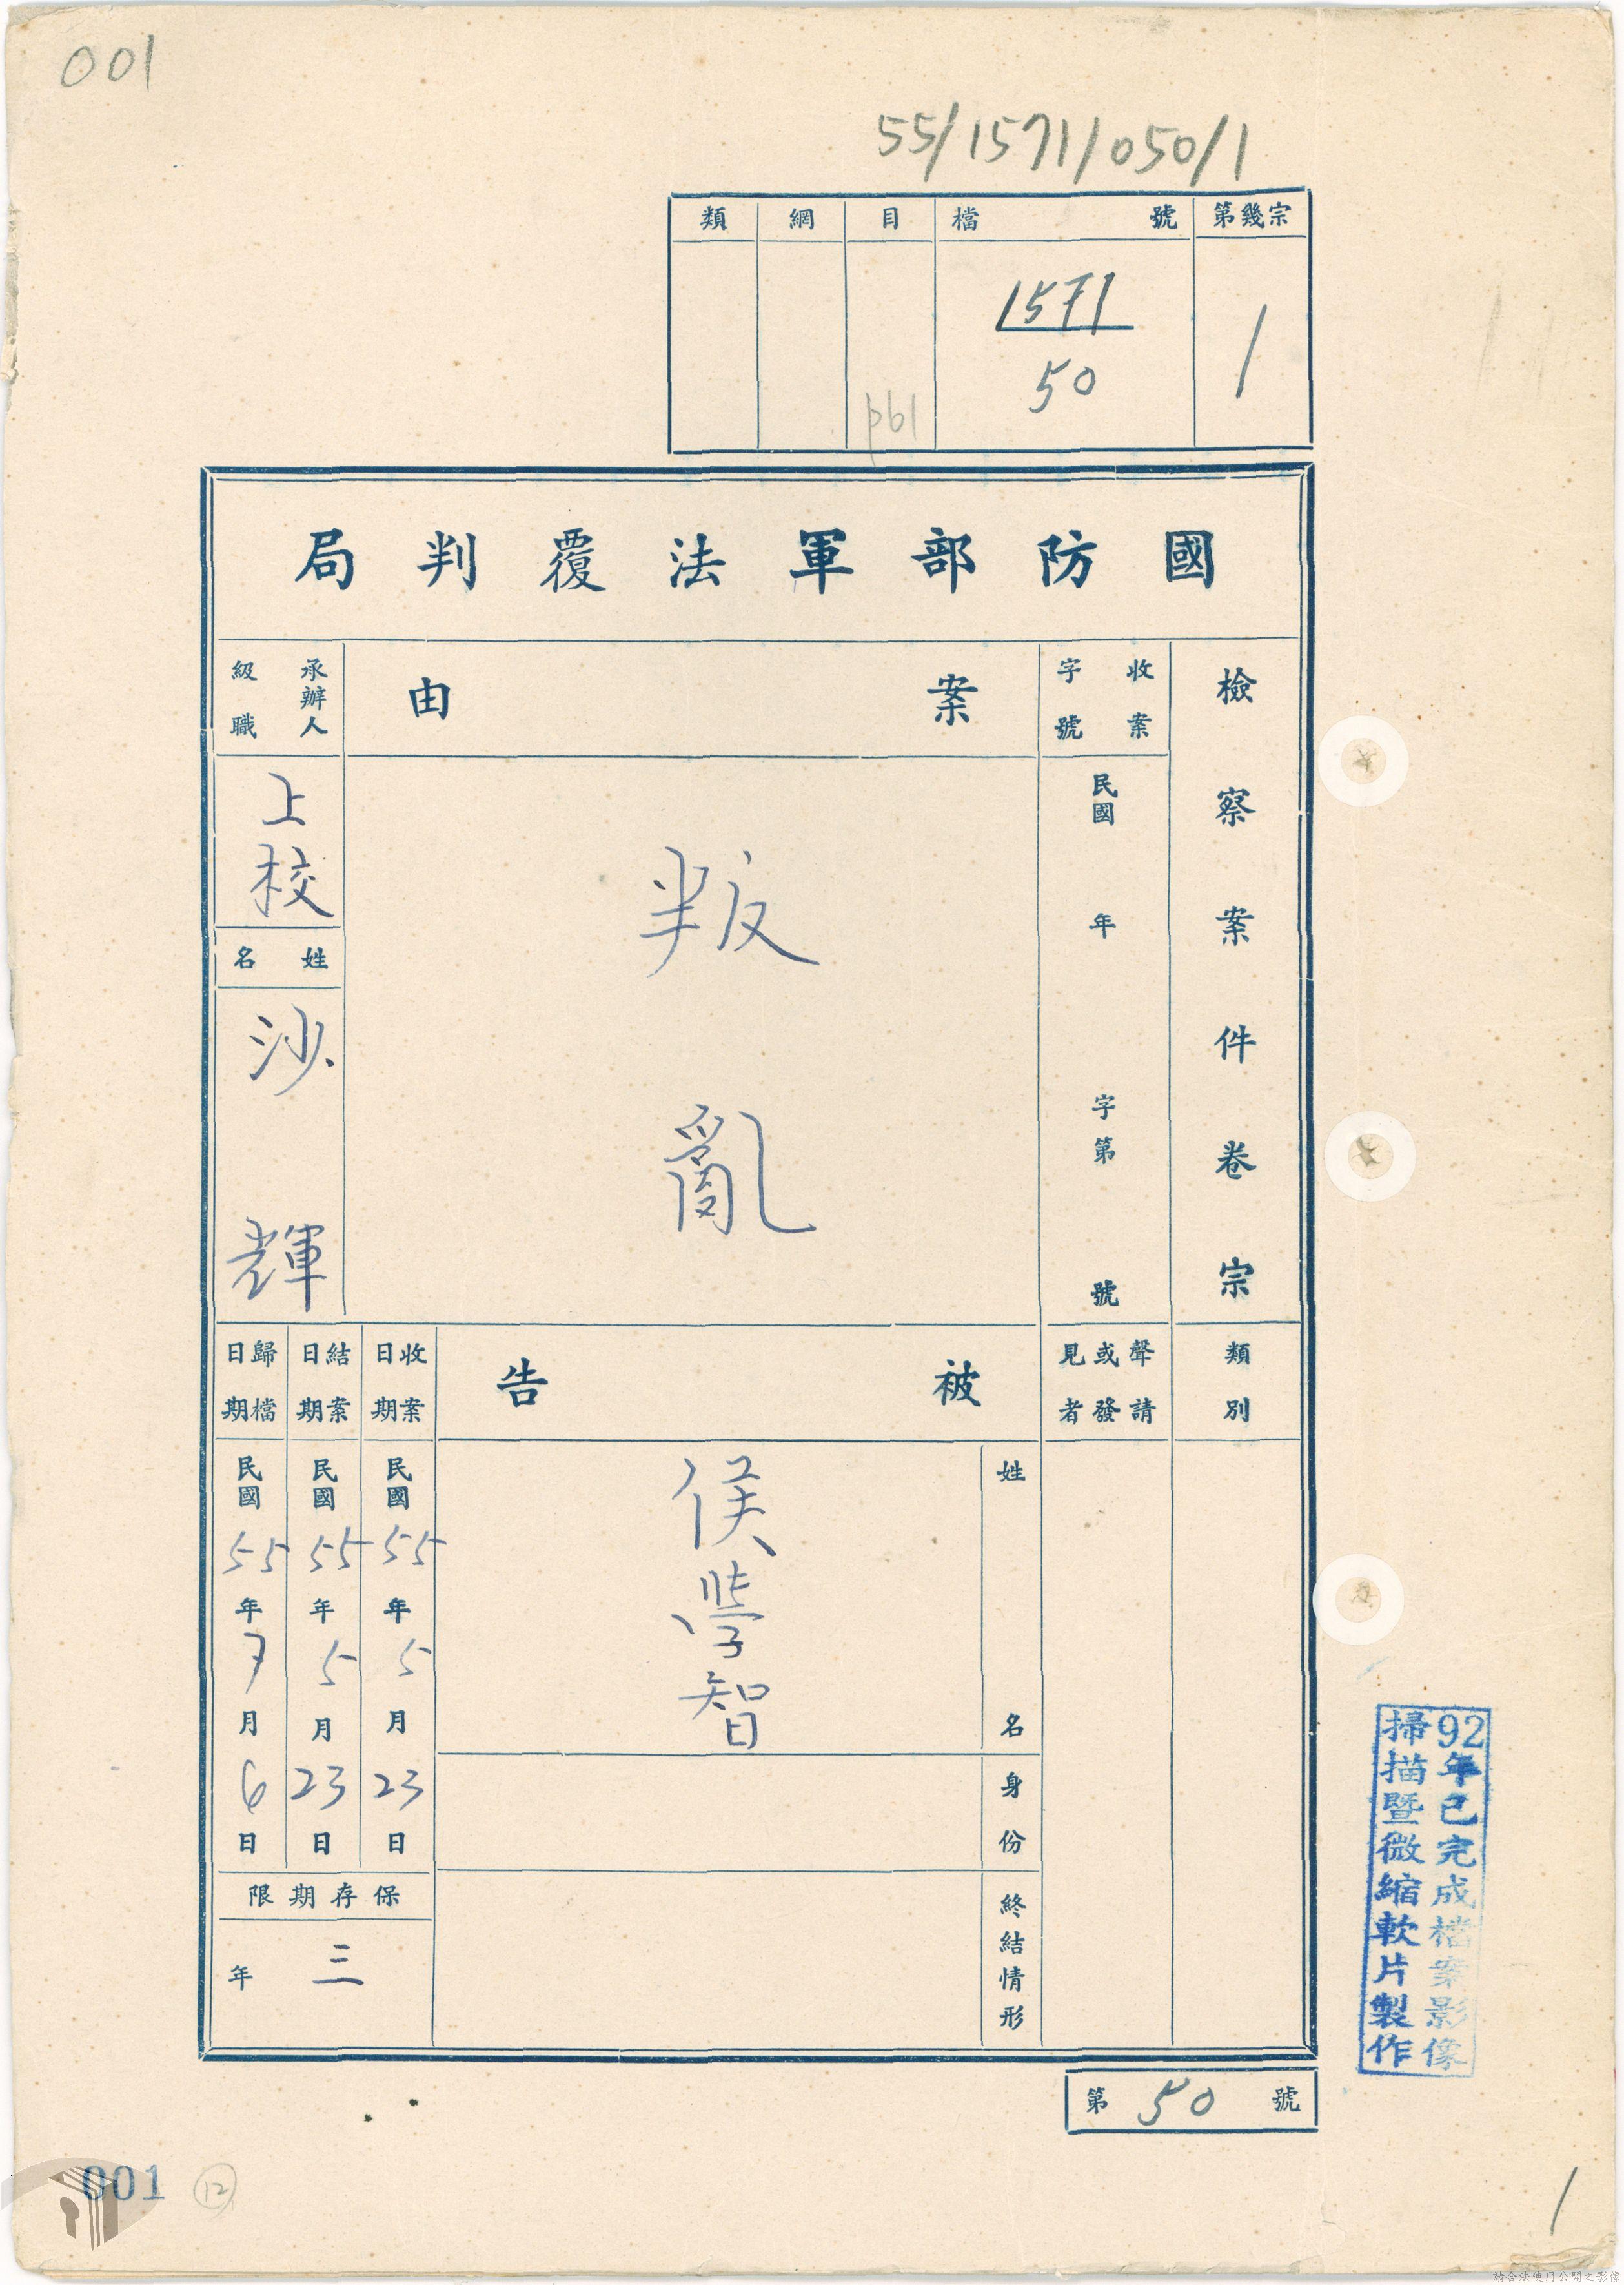 001
55/1571/050/1
類 網 目 檔號 第幾宗
1571
50
1
國防部軍法覆判局
檢察案件卷宗
收案字號
民國 年 字第 號
案由
叛亂
承辦人級職
上校
姓名
沙輝
類別
聲請或發見者
被告
姓名
侯學智
身份
終結情形
收案日期
民國55年5月23日
結案日期
民國55年5月23日
歸檔日期
民國55年7月6日
保存期限
三年
第50號
92年已完成檔案影像
掃描暨微縮軟片製作
001
12
1
請合法使用公開之影像